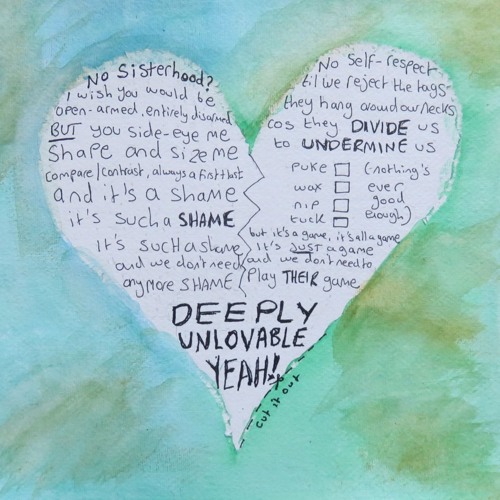 No Sisterhood?
I wish you would be
open-armed, entirely disarmed
BUT you side-eye me
Shape and size me
compare/contrast, always a first + last
and it's a shame
it's such a SHAME
It's such a shame
and we don't need
any more SHAME
No Self-respect
'til we reject the tags
they hang around our necks
cos they DIVIDE us
to UNDERMINE us
puke (-nothing's
wax ever
nip good
tuck enough)
but it's a game, it's all a game
It's JUST a game
and we don't need to
Play THEIR game
DEEPLY
UNLOVABLE
YEAH!
cut it out